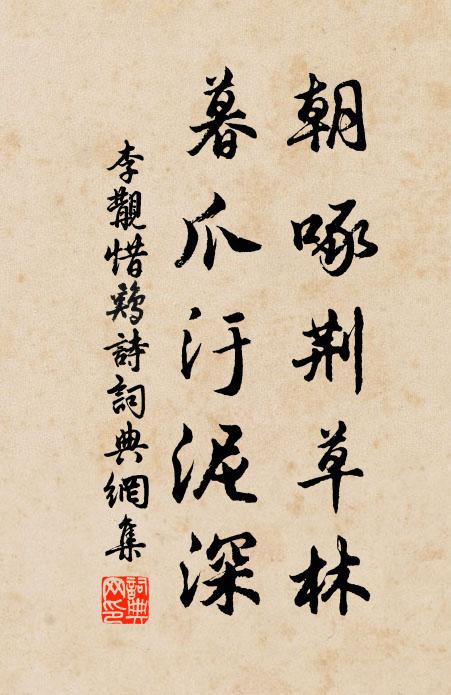 朝啄荆草林
暮爪汙泥深
李覯惜鷄詩詞典網集
詞典
网印